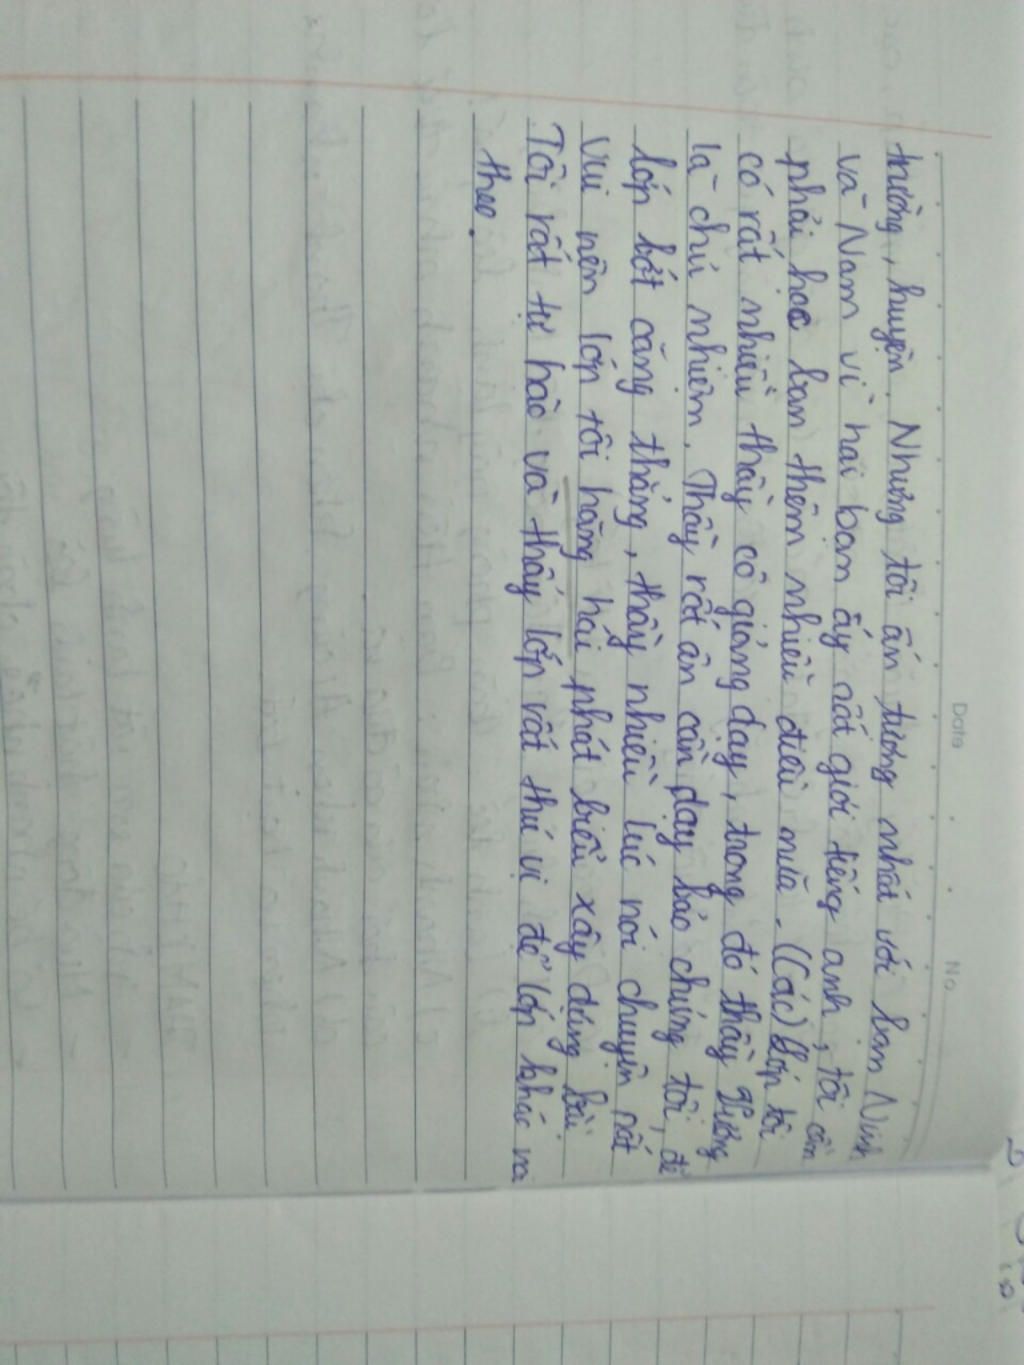 Date No
trường, huyện. Nhưng tôi ấn tượng nhất với bạn Ninh
và Nam vì hai bạn ấy rất giỏi tiếng anh, tôi cần
phải học bạn thêm nhiều điều nữa. (Các) lớp tôi
có rất nhiều thầy cô giảng dạy, trong đó thầy Vương
là chủ nhiệm. Thầy rất ân cần dạy bảo chúng tôi, để
lớp bớt căng thẳng, thầy nhiều lúc nói chuyện rất
vui nên lớp tôi hăng hái phát biểu xây dựng bài
Tôi rất tự hào và thấy lớp rất thú vị để lớp khác noi
theo.